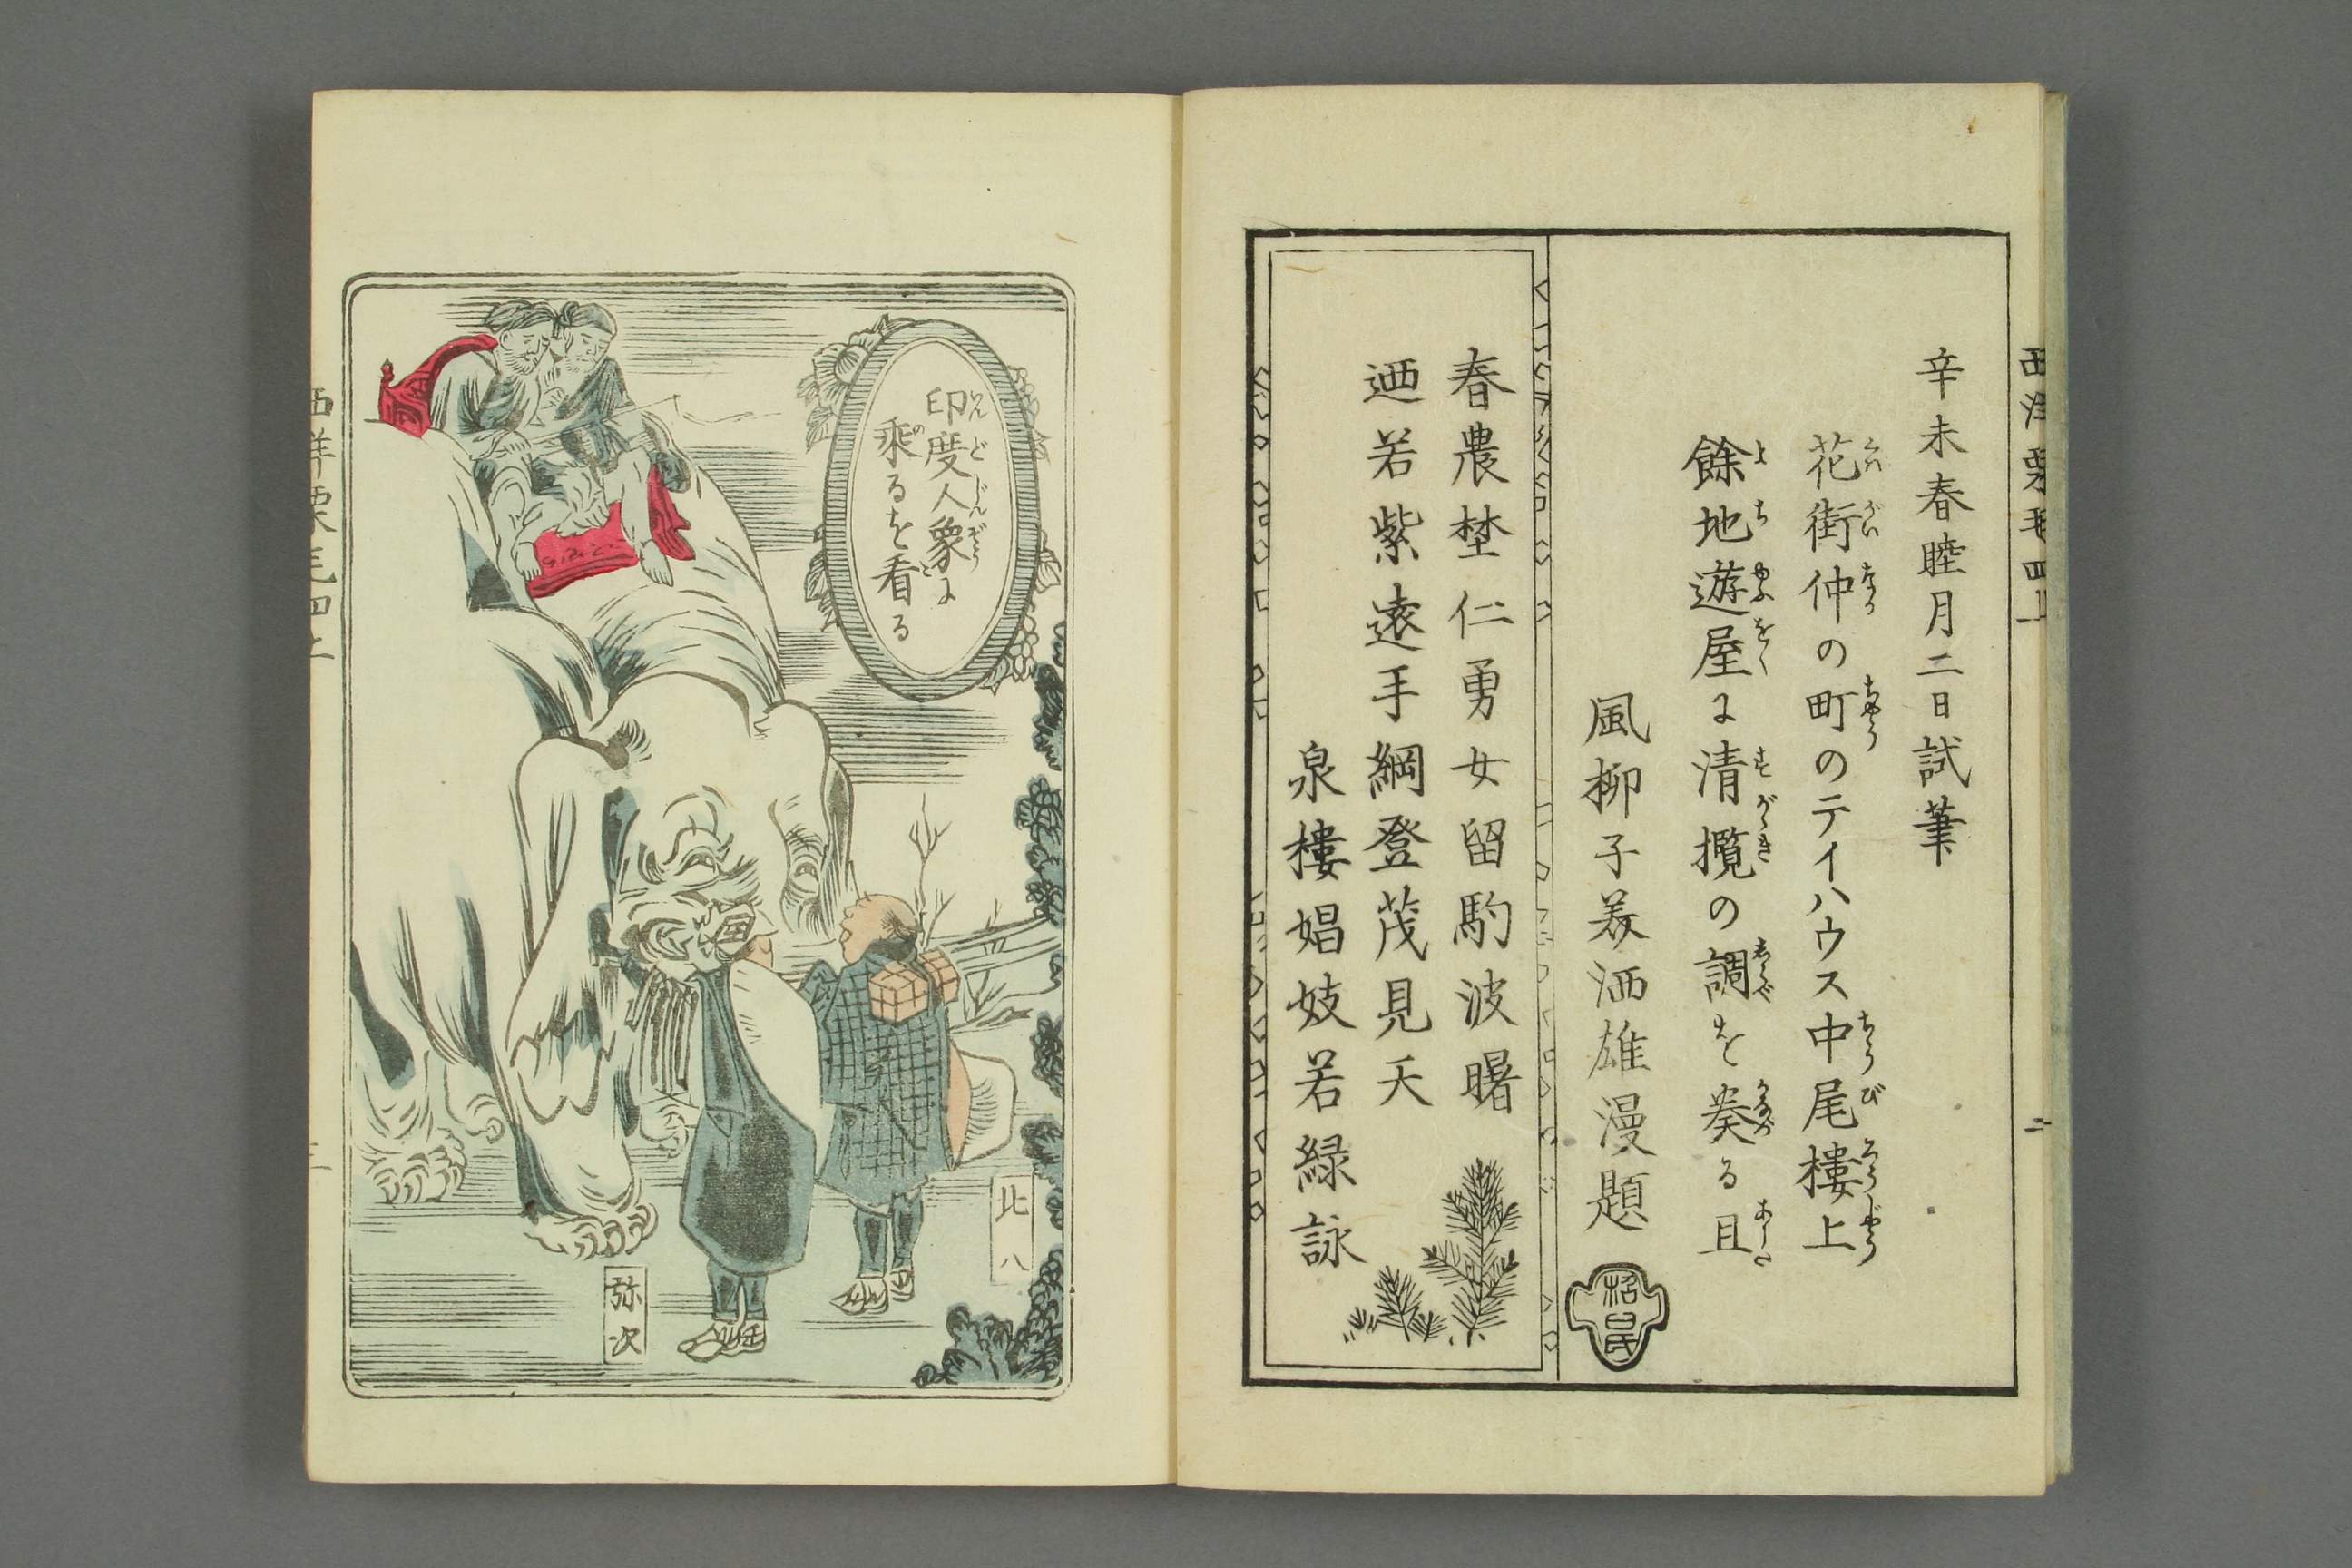 辛未春睦月二日試筆
花街仲の町のテイハウス中尾樓上
餘地遊屋に清攬の調を奏る且
風柳子羙洒雄漫題
春農埜仁勇女留駒波曙
迺若紫遠手綱登茂見天
泉樓娼妓若緑詠
印度人象に
乘るを看る
此八
弥次
西洋栗毛四上
二
西洋栗毛四上
三